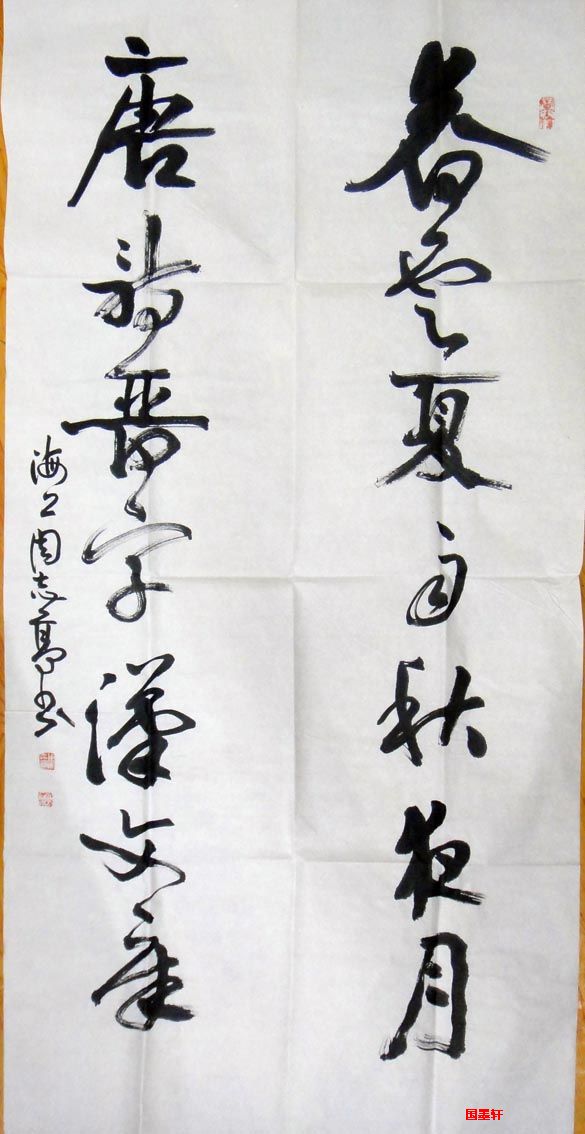 春雲夏雨秋夜月
唐詩晉字漢文章
海上周志高书
国墨轩